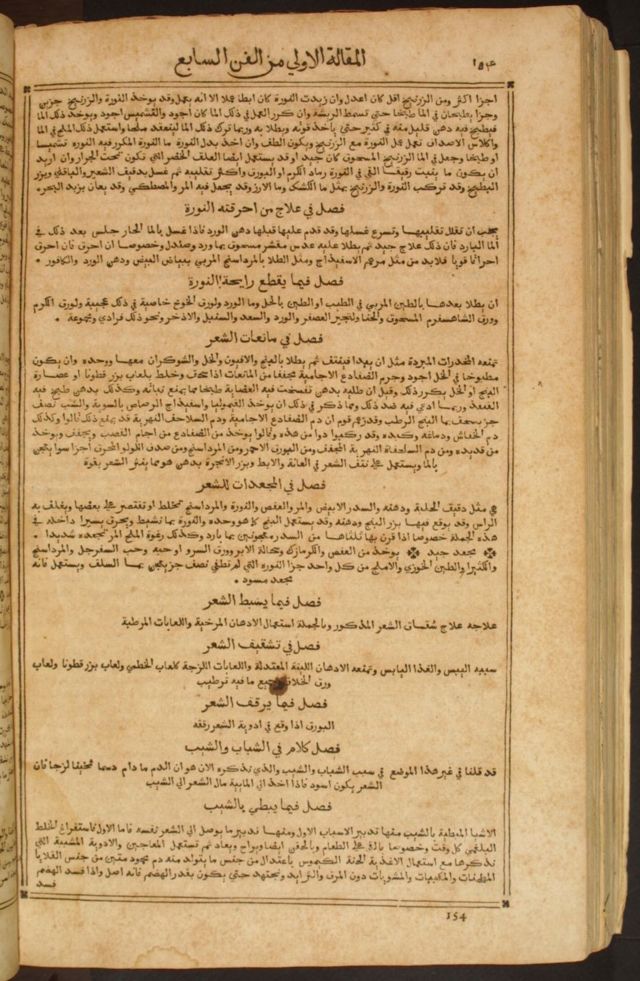 ١٥٤
المقالة الاولي من الفن السابع
اجزا اكثر ومن الزرنيخ اقل كان اعدل وان زيدت النورة كان ابطا عملا الا انه يعمل وقد يوخذ النورة والزرنيخ جزين
وجزا يطبخان في الما طبخا حتي تسمط الريشة وان كرر العمل في ذلك الما كان اجود والتشميس اجود ويوخذ ذلك الما
فيطبخ فيه دهن قليل منه في كثير حتي ياخذ قوته ويطلا به وربما ترك ذلك الما لينعقد ملحا واستعمل ذلك الملح في الما
وكلاس الاصداف تعمل عمل النورة مع الزرنيخ ويكون الطف وان اخذ بدل النورة ما النورة المكرر فيه النورة تشميسا
او طبخا وجعل في الما الزرنيخ المسحوق كان جيدا وقد يستعمل ايضا العلف الخضر التي تكون تحت الجرار وان اريد
ان يكون ما ينبت رقيقا القي في النورة رماد الكرم او البورق واكثر تقليبه ثم غسل بدقيق الشعير والباقلي وبزر
البطيخ وقد تركب النورة والزرنيخ بمثل ما الكشك وما الارز وقد يجعل فيه المر والمصطكي وقد يعان بزبد البحر
فصل في علاج من احرقته النورة
يجب ان تقلل تقليبها وتسرع غسلها وقد قدم عليها قبلها دهن الورد فاذا غسل بالما الحار جلس بعد ذلك في
الما البارد فان ذلك علاج جيد ثم يطلا عليه عدس مقشر مسحوق بما ورد وصندل وخصوصا ان احرق فان احرق
احراقا قويا فلا بد من مثل مرهم الاسفيداج ومثل الطلا بالمرداسنج المربي ببياض البيض ودهن الورد والكافور
فصل فيما يقطع رايحة النورة
ان يطلا بعدها بالطين المربي في الطيب او الطين بالخل وما الورد ولورق الخوخ خاصية في ذلك عجيبة ولورق الكرم
وورق الشاهسفرم المسحوق والحنا ولثجير العصفر والورد والسعد والسنبل والاذخر ونحو ذلك فرادي ومجموعة
فصل في مانعات الشعر
تمنعه المخدرات المبردة مثل ان يبدا فينتف ثم يطلا بالبنج والافيون والخل والشوكران معها ووحده وان يكون
مطبوخا في الخل اجود وجرم الضفادع الاجامية مجففا من المانعات اذا سحق وخلط بلعاب بزر قطونا او عصارة
البنج او الخل يكرر ذلك وقيل ان طليه بدهن تفسخت فيه العضاية طبخا مما يمنع نباته وكذلك بدهن طبخ فيه
القنفد وربما ادي فيه ضد ذلك ومما ذكر في ذلك ان يوخذ القيموليا واسفيداج الرصاص بالسوية والشب نصف
جز يسحف بما البنج الرطب وقد زعم قوم ان دم الضفادع الاجامية ودم السلاحف النهرية قد يمنع ذلك قالوا وكذلك
دم الخفاش ودماغه وكبده وقد ركبوا دوا من هذه وقالوا يوخذ من الضفادع من اجام القصب ويجفف ويوخذ
من قديده ومن دم السلحفاة النهرية المجفف ومن البورق الاحمر ومن المرداسنج ومن صدف اللولو المحرق اجزا سوا يعجن
بالما ويستعمل علي نتف الشعر في العانة والابط وبزر الانجرة بدهن هو مما ينثر الشعر بقوة
فصل في المجعدات للشعر
هي مثل دقيق الحلبة ودهنه والسدر الابيض والمر والعفص والنورة والمرداسنج تختلط او تقتصر علي بعضها ويغلف به
الراس وقد يوقع فيها بزر البنج ودهنه وقد يستعمل البنج كما هو وحده والنورة بما تشيط ويحرق يسيرا داخله في
هذه الجملة خصوصا اذا قرن بها ثلثاها من السدر معجونين بما بارد وكذلك رغوة الملح المر تجعده شديدا
يجعد جيد يوخذ من العفص والكزمازك ونخالة الابر وورق السرو او حبه وحب السفرجل والمرداسنج
والكثيرا والطين الخوزي والاملج من كل واحد جزا النورة التي لم تطفي نصف جز يعجن بما السلق ويستعمل فانه
يجعد مسود
فصل فيما يبسط الشعر
علاجه علاج شقاق الشعر المذكور وبالجملة استعمال الادهان المرخية واللعابات المرطبة
فصل في تشقيق الشعر
سببه اليبس والغذا اليابس وتمنعه الادهان اللينة المعتدلة واللعابات اللزجة كلعاب الخطمي ولعاب بزر قطونا ولعاب
ورق الخلاف وجميع ما فيه ترطيب
فصل فيما يرقف الشعر
البورق اذا وقع في ادوية الشعر رققه
فصل كلام في الشباب والشيب
قد قلنا في غير هذا الموضع في سبب الشباب والشيب والذي نذكره الان هو ان الدم ما دام دسما ثخينا لزجا فان
الشعر يكون اسود فاذا اخذ الي المايية مال الشعر الي الشيب
فصل فيما يبطي بالشيب
الاشيا المبطية بالشيب منها تدبير الاسباب الاول ومنها تدبير ما يوصل الي الشعر نفسه فاما الاول فاستفراغ الخلط
البلغمي كل وقت وخصوصا بالقي علي الطعام وبالحقن ايضا ويراح ويعاد ثم تستعمل المعاجين والادوية المشيبة التي
نذكرها مع استعمال الاغذية الحسنة الكيموس باعتدال من جنس ما يتولد منه دم محمود متين من جنس القلايا
المطجنات والمكببات والمشويات دون المرق والثرايد ويجتهد حتي يكون بقدر الهضم فانه اصل واذا فسد الهضم
فسد
154